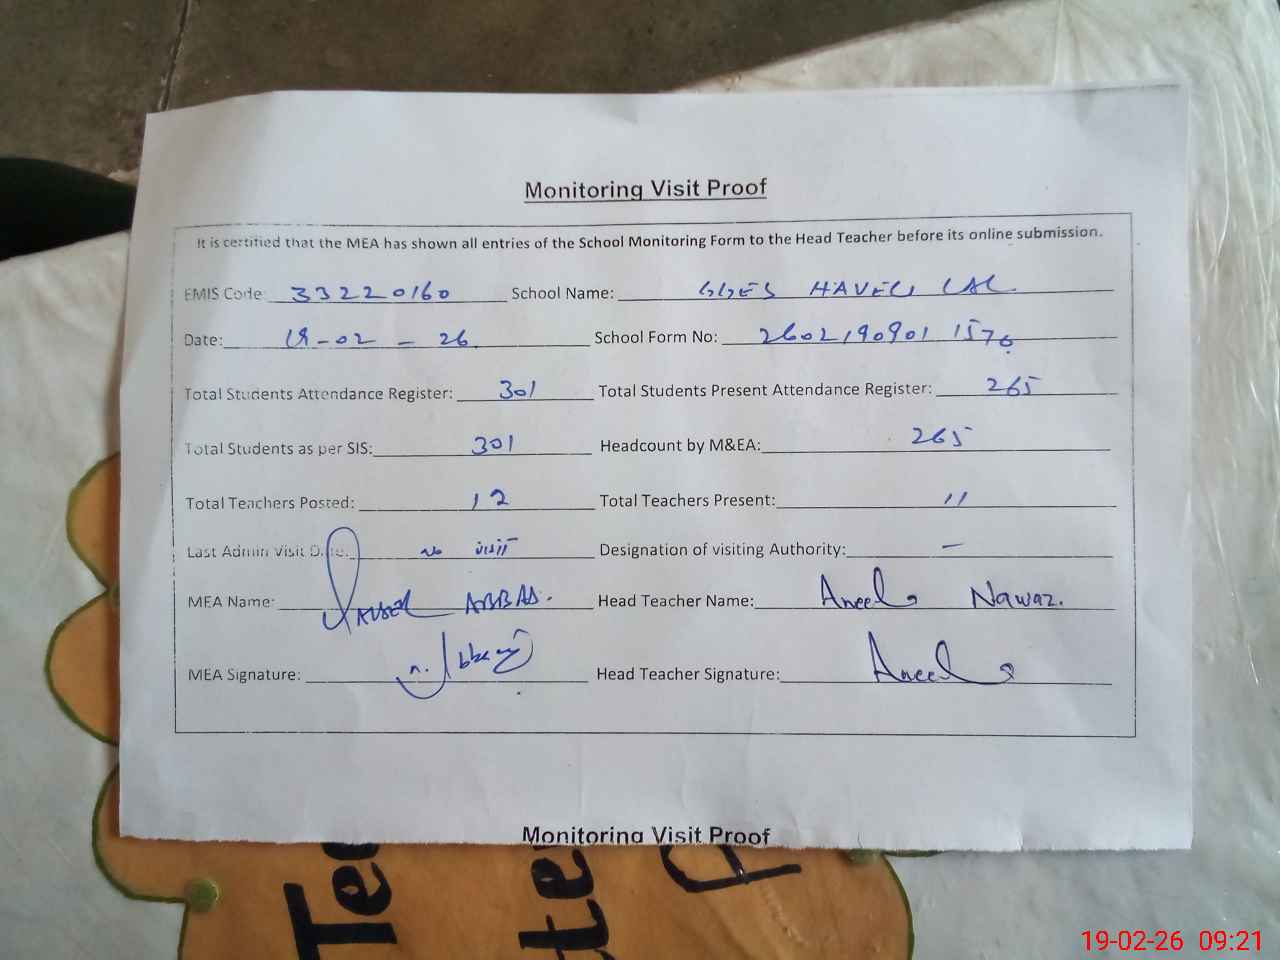 Monitoring Visit Proof
It is certified that the MEA has shown all entries of the School Monitoring Form to the Head Teacher before its online submission.
EMIS Code: 33220160 School Name: GGES HAVELI LAL
Date: 19-02-26 School Form No: 2602190901 1576
Total Students Attendance Register: 301 Total Students Present Attendance Register: 265
Total Students as per SIS: 301 Headcount by M&EA: 265
Total Teachers Posted: 12 Total Teachers Present: 11
Last Admin Visit Date: no visit Designation of visiting Authority: —
MEA Name: ABBAS. Head Teacher Name: Aneela Nawaz.
MEA Signature: Head Teacher Signature: Aneela
Monitoring Visit Proof
19-02-26 09:21